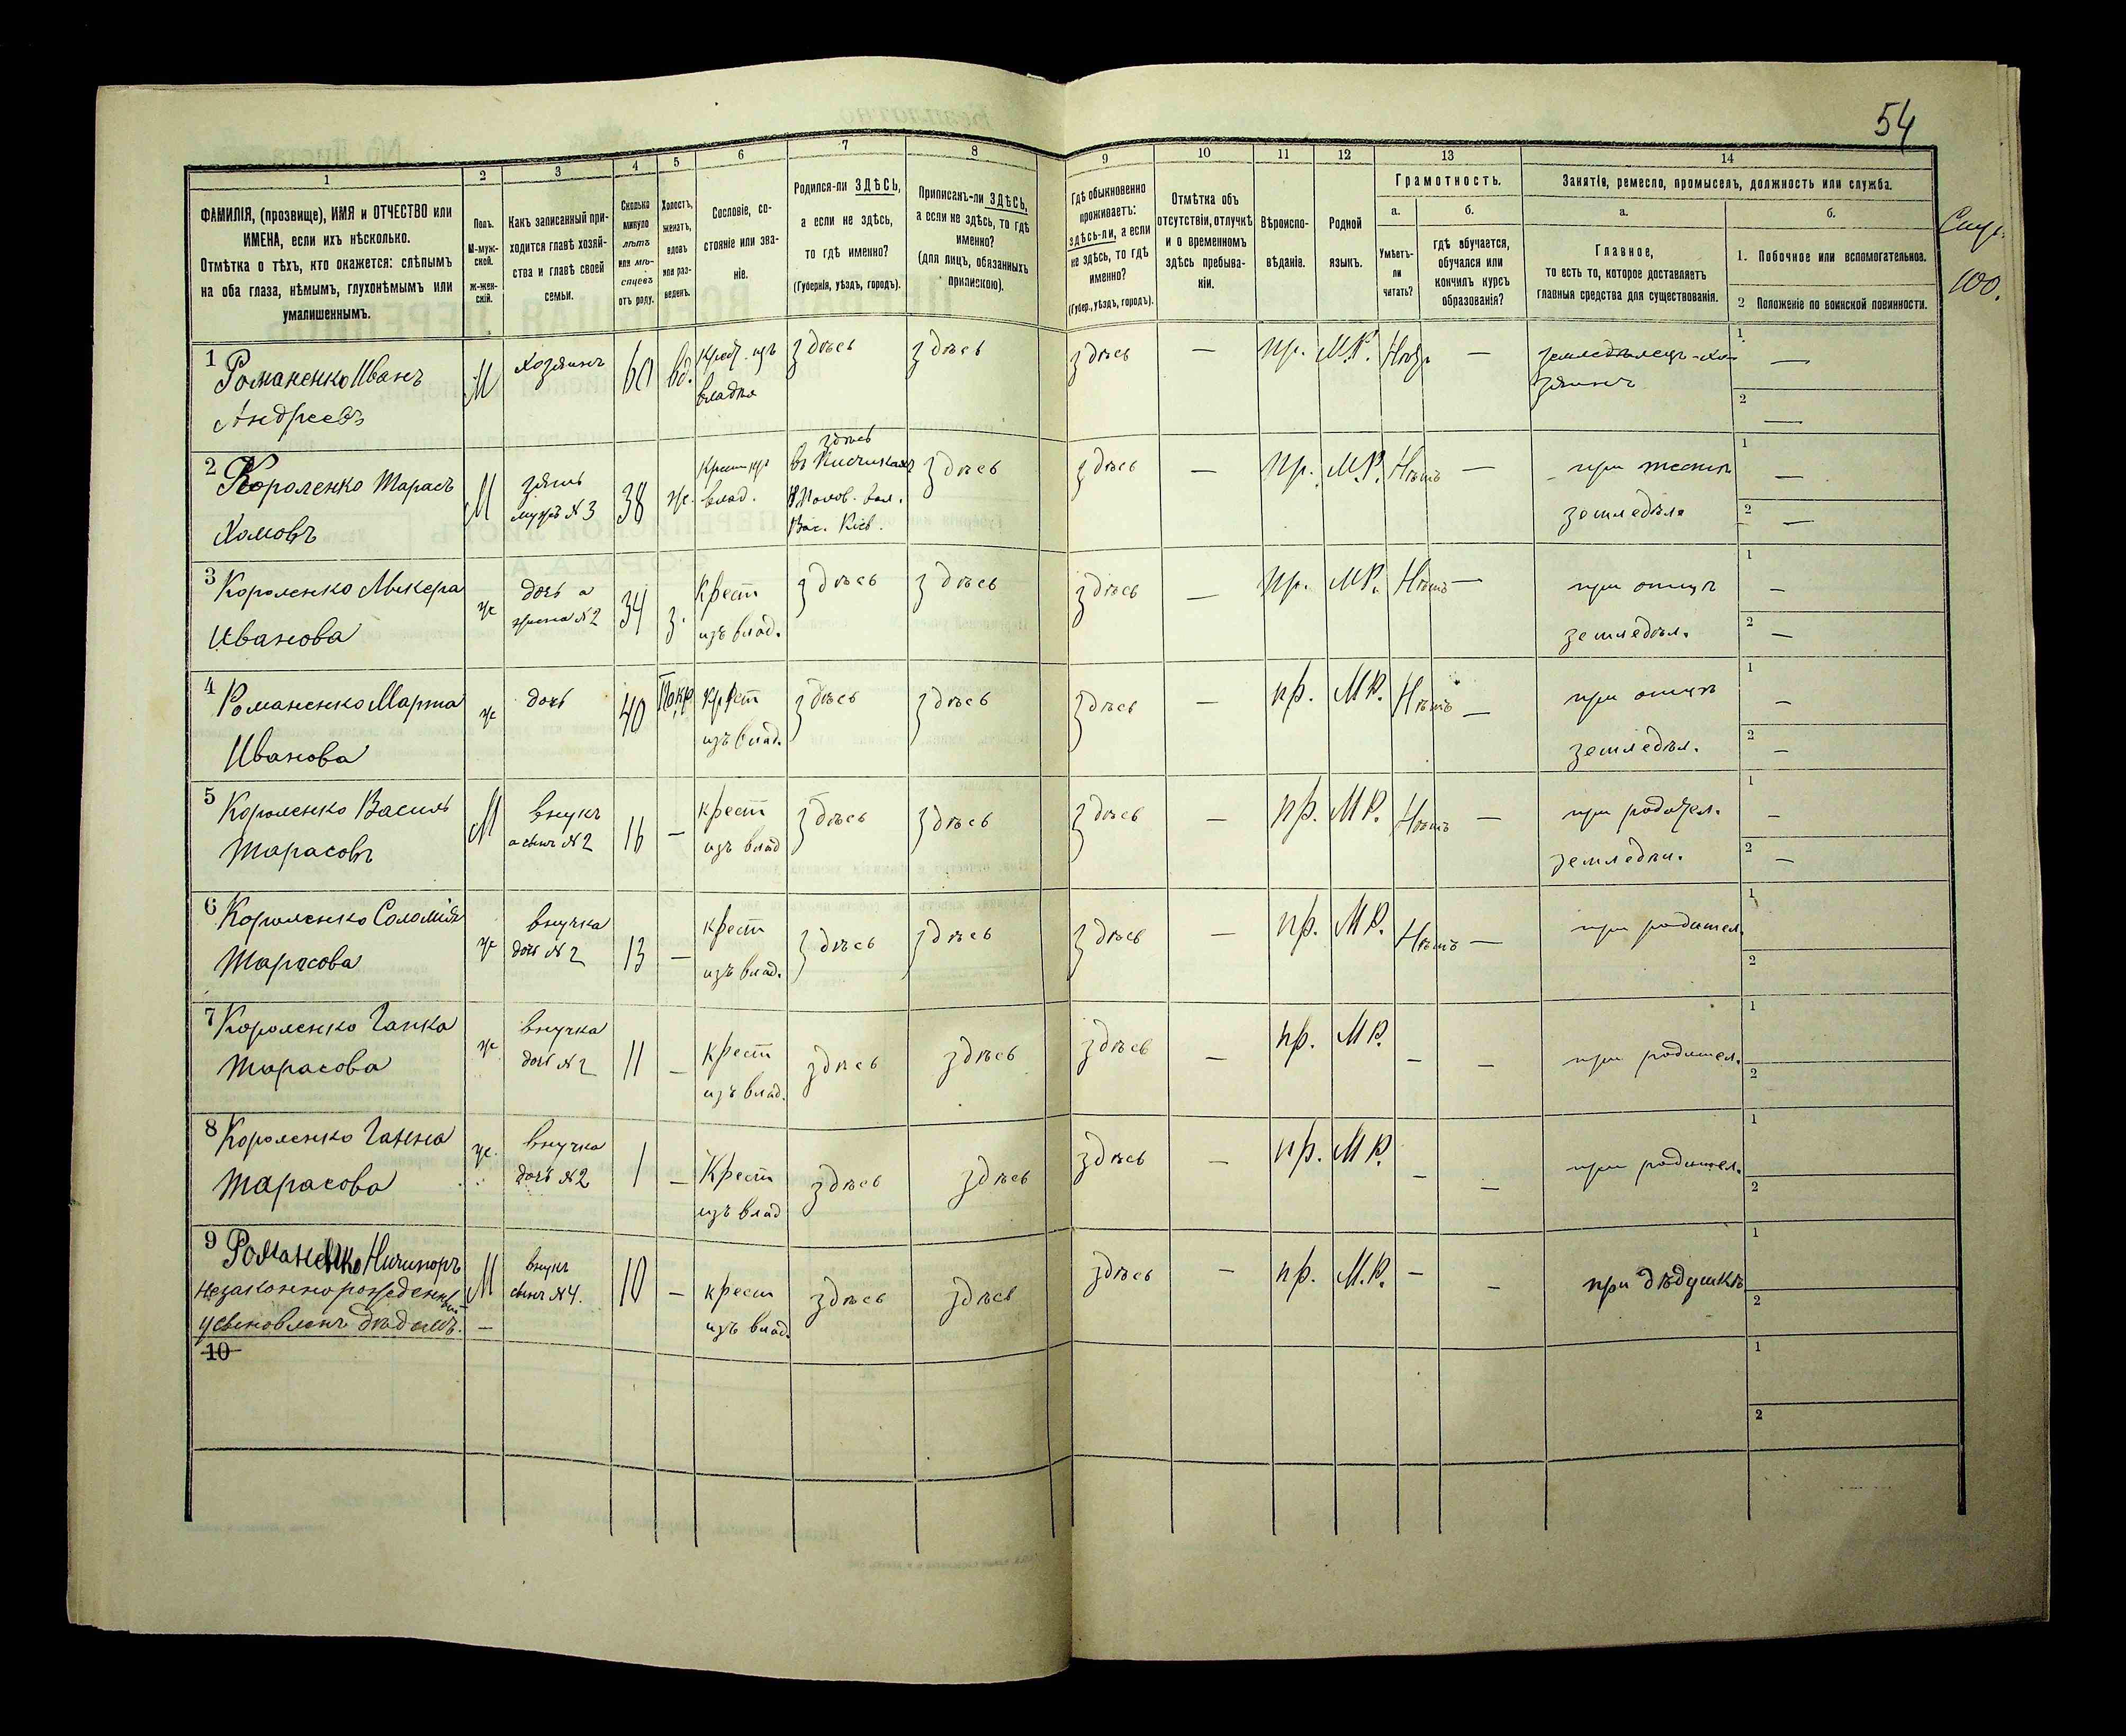 54
1 2 3 4 5 6 7 8 9 10 11 12 13 14
ФАМИЛІЯ, (прозвище), ИМЯ и ОТЧЕСТВО или
ИМЕНА, если ихъ нѣсколько.
Отмѣтка о тѣхъ, кто окажется: слѣпымъ
на оба глаза, нѣмымъ, глухонѣмымъ или
умалишеннымъ.
Полъ.
М-муж-
ской.
ж-жен-
скій.
Какъ записанный при-
ходится главѣ хозяй-
ства и главѣ своей
семьи.
Сколько
минуло
лѣтъ
или мѣ-
сяцевъ
отъ роду.
Холостъ,
женатъ,
вдовъ
или раз-
веденъ.
Сословіе, со-
стояніе или зва-
ніе.
Родился-ли ЗДѢСЬ,
а если не здѣсь,
то гдѣ именно?
(Губернія, уѣздъ, городъ).
Приписанъ-ли ЗДѢСЬ,
а если не здѣсь, то гдѣ
именно?
(для лицъ, обязанныхъ
припискою).
Гдѣ обыкновенно
проживаетъ:
здѣсь-ли, а если
не здѣсь, то гдѣ
именно?
(Губер., уѣздъ, городъ).
Отмѣтка объ
отсутствіи, отлучкѣ
и о временномъ
здѣсь пребыва-
ніи.
Вѣроиспо-
вѣданіе.
Родной
языкъ.
Грамотность.
а.
Умѣетъ-
ли
читать?
б.
гдѣ обучается,
обучался или
кончилъ курсъ
образованія?
Занятіе, ремесло, промыселъ, должность или служба.
а.
Главное,
то есть то, которое доставляетъ
главныя средства для существованія.
б.
1. Побочное или вспомогательное.
2 Положеніе по воинской повинности.
100.
1 Романенко Иванъ
Андреевъ
М хозяинъ 60 вд. Крест. изъ
владѣл
здѣсь здѣсь здѣсь — пр. М.Р. Нѣтъ — земледѣлецъ-хо-
зяинъ
1 —
2 —
2 Короленко Тарасъ
Хомовъ
М зять
мужъ №3 38 ж. Крест изъ
влад.
здѣсь
Вас. Кіев.
здѣсь здѣсь — пр. М.Р. Нѣтъ — при тестѣ
земледѣл.
1 —
2 —
3 Короленко Микера
Иванова
ж дочь а
жена №2 34 з. Крест
изъ влад.
здѣсь здѣсь здѣсь — пр. М.Р. Нѣтъ — при отцѣ
земледѣл.
1 —
2 —
4 Романенко Марта
Иванова
ж дочь 40 Покр. крест
изъ влад.
здѣсь здѣсь здѣсь — пр. М.Р. Нѣтъ — при отцѣ
земледѣл.
1 —
2 —
5 Короленко Василь
Тарасовъ
М внукъ
а сынъ №2 16 — крест
изъ влад
здѣсь здѣсь здѣсь — пр. М.Р. Нѣтъ — при родител.
земледѣл.
1 —
2 —
6 Короленко Соломія
Тарасова
ж внучка
дочь №2 13 — крест
изъ влад.
здѣсь здѣсь здѣсь — пр. М.Р. Нѣтъ — при родител.
1
2
7 Короленко Гапка
Тарасова
ж внучка
дочь №2 11 — крест
изъ влад.
здѣсь здѣсь здѣсь — пр. М.Р. — — при родител.
1
2
8 Короленко Ганна
Тарасова
ж. внучка
дочь №2 1 — Крест
изъ влад
здѣсь здѣсь здѣсь — пр. М.Р. — — при родител.
1
2
9 Романенко Ничипоръ
незаконнорожденный
усыновленъ дѣдомъ. —
М внукъ
сынъ №4. 10 — крест
изъ влад.
здѣсь здѣсь здѣсь — пр. М.Р. — — при дѣдушкѣ
1
2
10
1
2